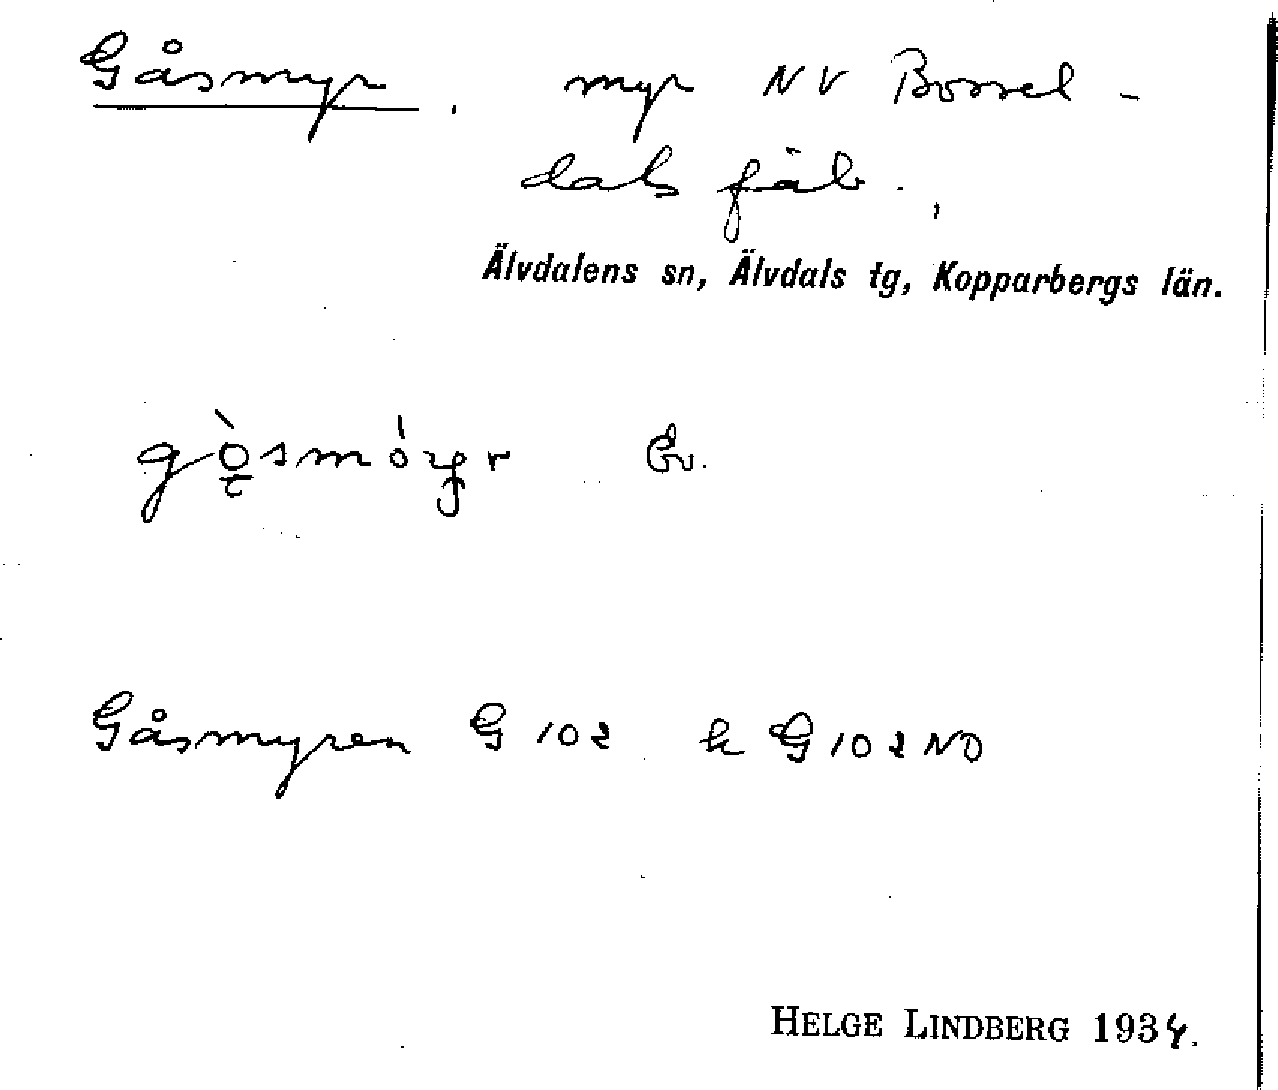 Gåsmyr. myr NV Borrel-
dals fäb.,
Älvdalens sn, Älvdals tg, Kopparbergs län.
Ev.
Gåsmyren G 102 k G 102 NO
HELGE LINDBERG 1934.